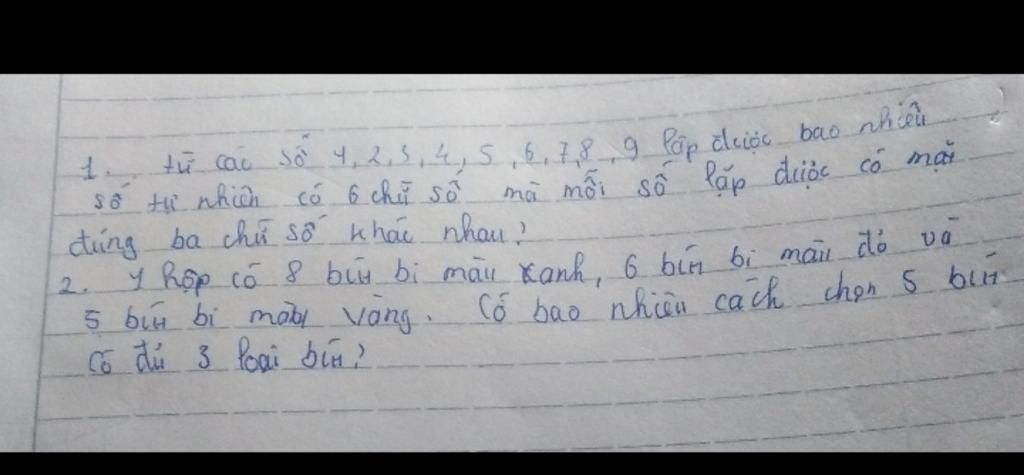 1. từ các số 1, 2, 3, 4, 5, 6, 7, 8, 9 lập được bao nhiêu
số tự nhiên có 6 chữ số mà mỗi số lập được có mặt
đúng ba chữ số khác nhau?
2. 1 hộp có 8 bin bi màu xanh, 6 bin bi màu đỏ và
5 bin bi màu vàng. Có bao nhiêu cách chọn 5 bin
Có đủ 3 loại bin?